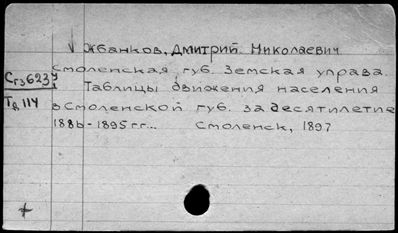 Жбанков, Дмитрий Николаевич
Смоленская губ. Земская управа.
Сг3623
Таблицы движения населения
Тв 114
в Смоленской губ. за десятилетие
1886-1895 гг... Смоленск, 1897
+